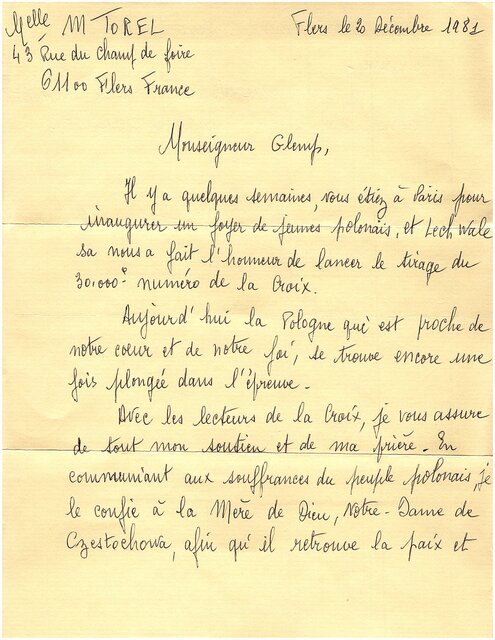 Melle M TOREL
Flers le 20 Décembre 1981
43 Rue du Champ de foire
61100 Flers France
Monseigneur Glemp,
Il y a quelques semaines, vous étiez à Paris pour
inaugurer un foyer de jeunes polonais, et Lech Wale
sa nous a fait l'honneur de lancer le tirage du
30.000e numéro de la Croix.
Aujourd'hui la Pologne qui est proche de
notre coeur et de notre foi, se trouve encore une
fois plongée dans l'épreuve.
Avec les lecteurs de la Croix, je vous assure
de tout mon soutien et de ma prière. En
communiant aux souffrances du peuple polonais, je
le confie à la Mère de Dieu, Notre-Dame de
Czestochowa, afin qu'il retrouve la paix et